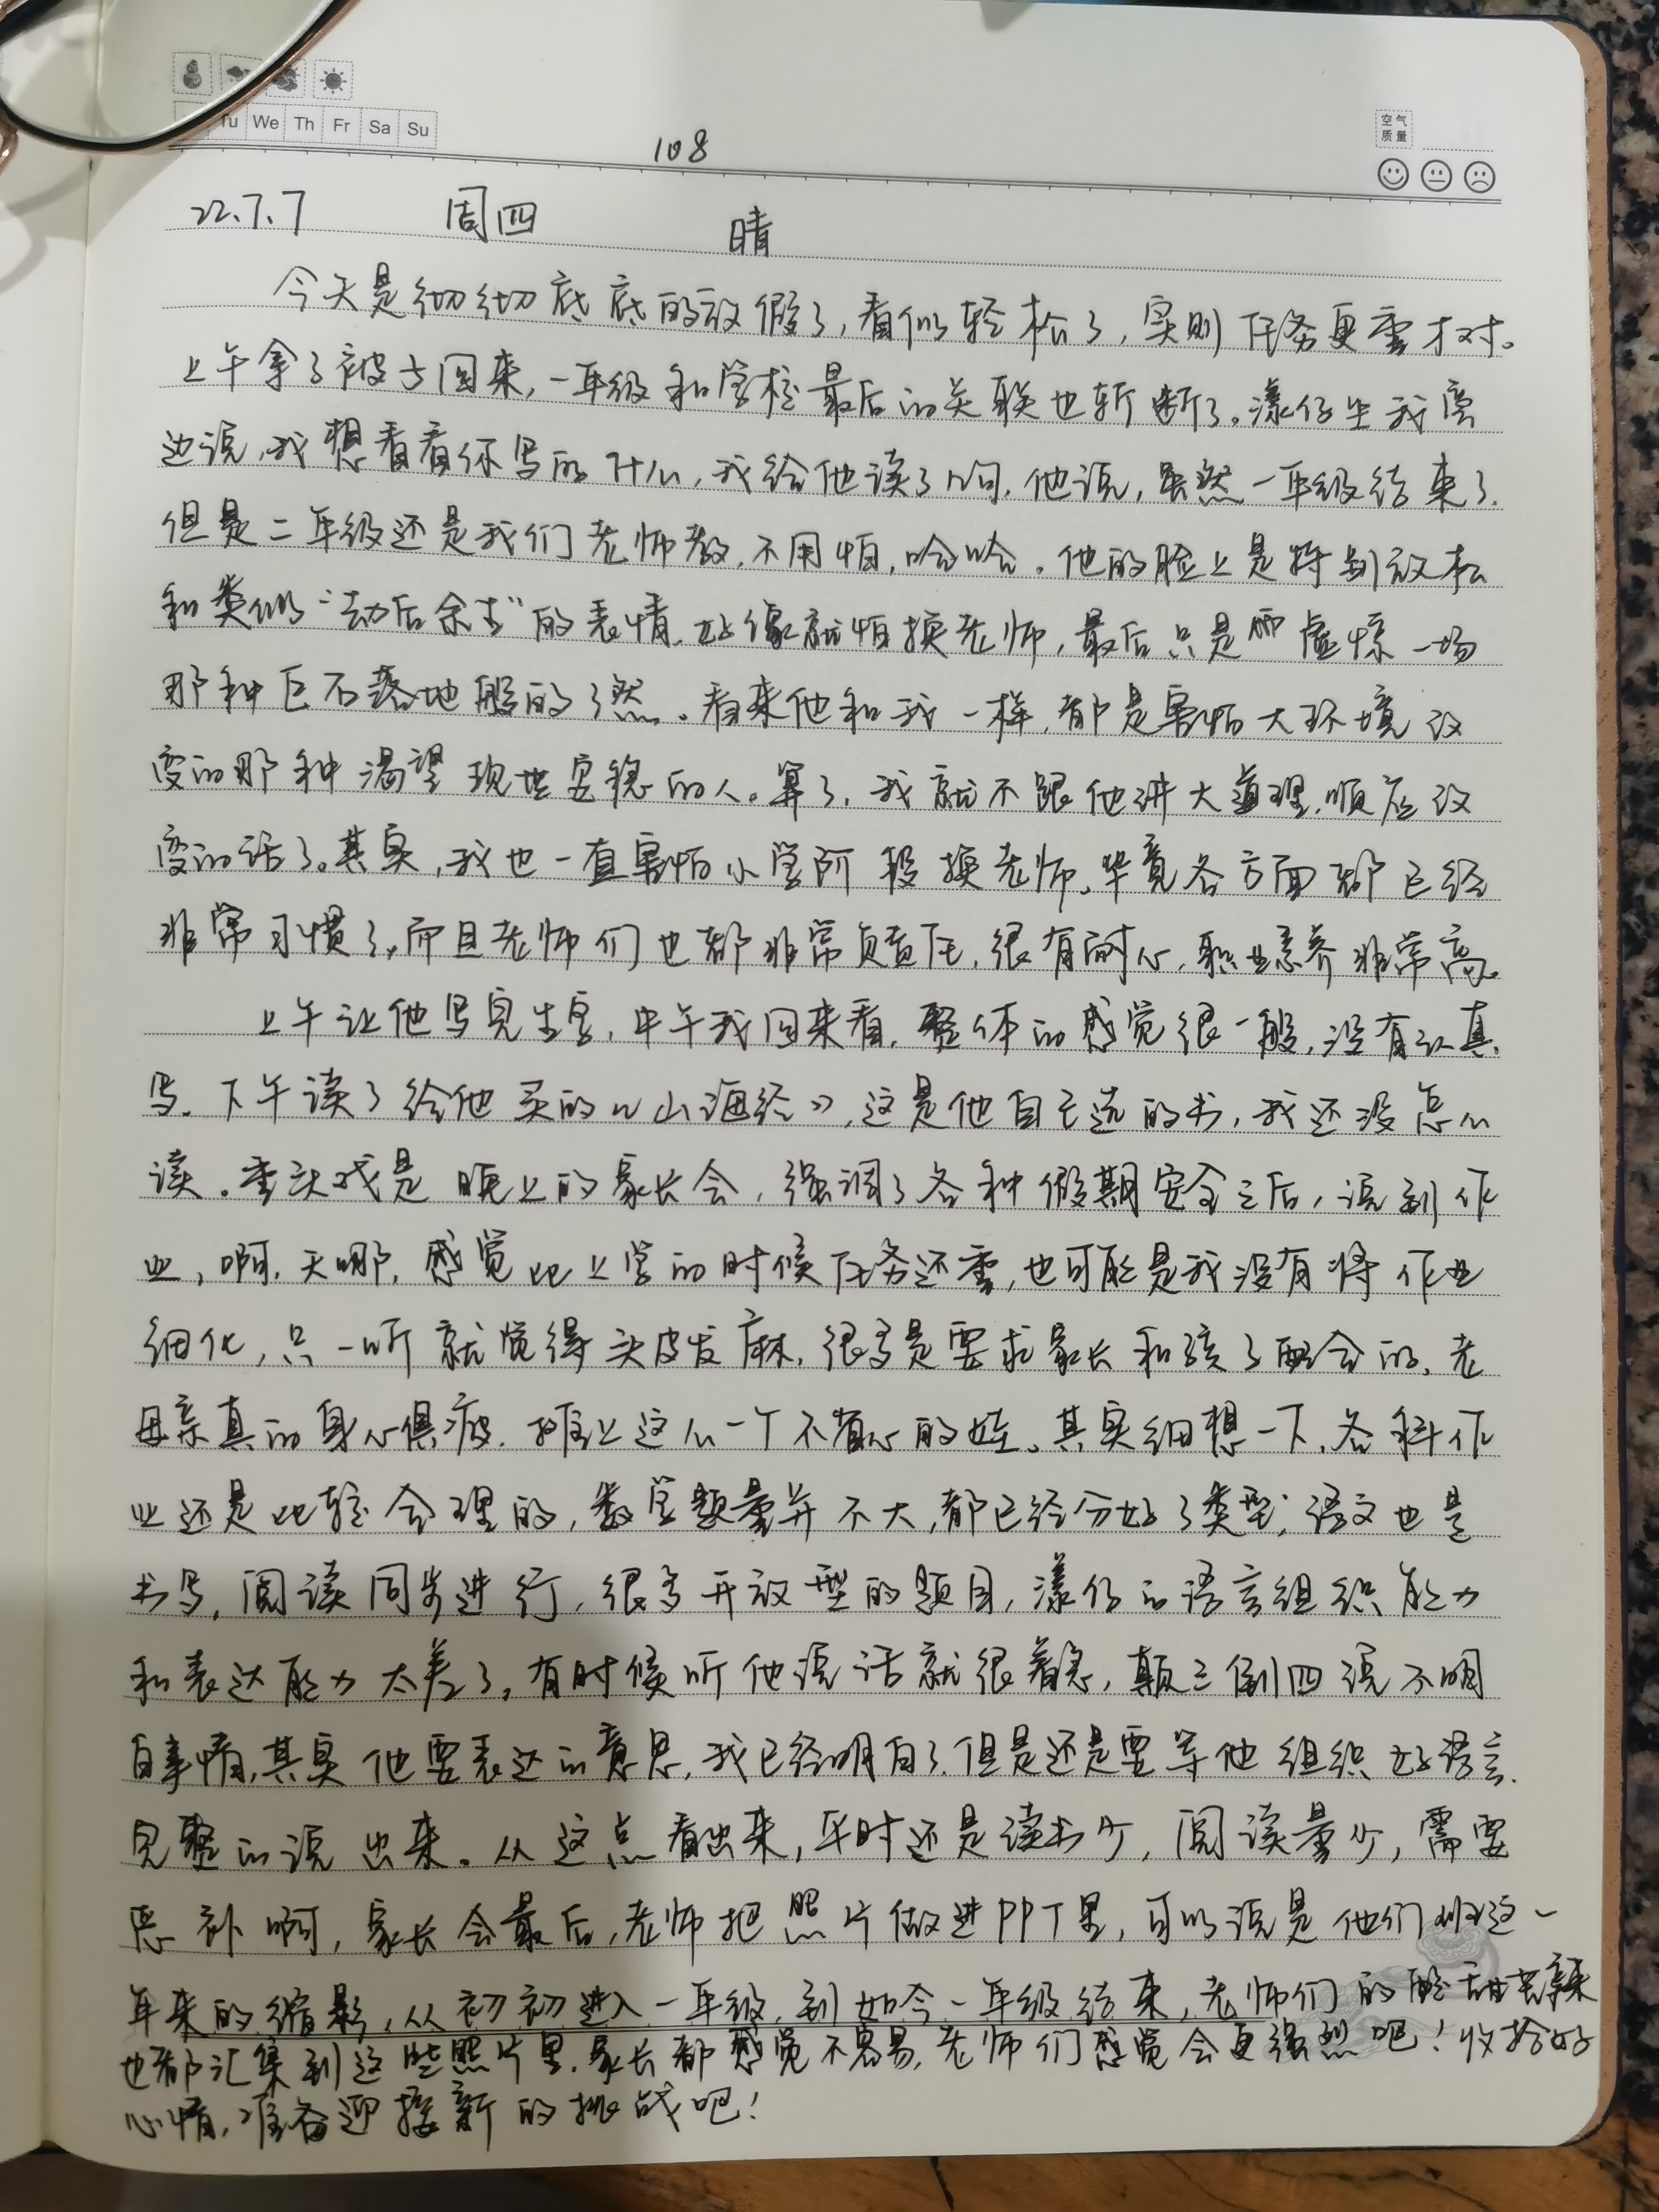 Tu We Th Fr Sa Su
空气
质量
108
22.7.7 周四 晴
今天是彻彻底底的放假了，看似轻松了，实则任务更重才对。
上午拿了被子回来，一年级和学校最后的关联也斩断了。漾仔坐我旁
边说，我想看看你写的什么，我给他读了几句，他说，虽然一年级结束了，
但是二年级还是我们老师教，不用怕，哈哈。他的脸上是特别放松
和类似“劫后余生”的表情，好像就怕换老师，最后只是虚惊一场
那种巨石落地般的了然。看来他和我一样，都是害怕大环境改
变的那种渴望现世安稳的人。算了，我就不跟他讲大道理，顺应改
变的话了。其实，我也一直害怕小学阶段换老师。毕竟各方面都已经
非常习惯了，而且老师们也都非常负责任，很有耐心，职业素养非常高。
上午让他写完生字，中午我回来看，整体的感觉很一般，没有认真
写。下午读了给他买的《山海经》，这是他自己选的书，我还没怎么
读。重头戏是晚上的家长会，强调了各种假期安全之后，说到作
业，啊，天哪，感觉比上学的时候任务还重，也可能是我没有将作业
细化，只一听就觉得头皮发麻，很多是要求家长和孩子配合的，老
母亲真的身心俱疲，摊上这么一个不省心的娃。其实细想一下，各科作
业还是比较合理的，数学题量并不大，都已经分好了类型；语文也是
书写，阅读同步进行，很多开放型的题目，漾仔的语言组织能力
和表达能力太差了，有时候听他说话就很着急，颠三倒四说不明
白事情，其实他要表达的意思，我已经明白了，但是还是要等他组织好语言，
完整的说出来。从这点看出来，平时还是读书少，阅读量少，需要
恶补啊，家长会最后，老师把照片做进PPT里，可以说是他们班这一
年来的缩影，从初初进入一年级，到如今一年级结束，老师们的酸甜苦辣
也都汇集到这些照片里，家长都感觉不容易，老师们感觉会更强烈吧！收拾好
心情，准备迎接新的挑战吧！